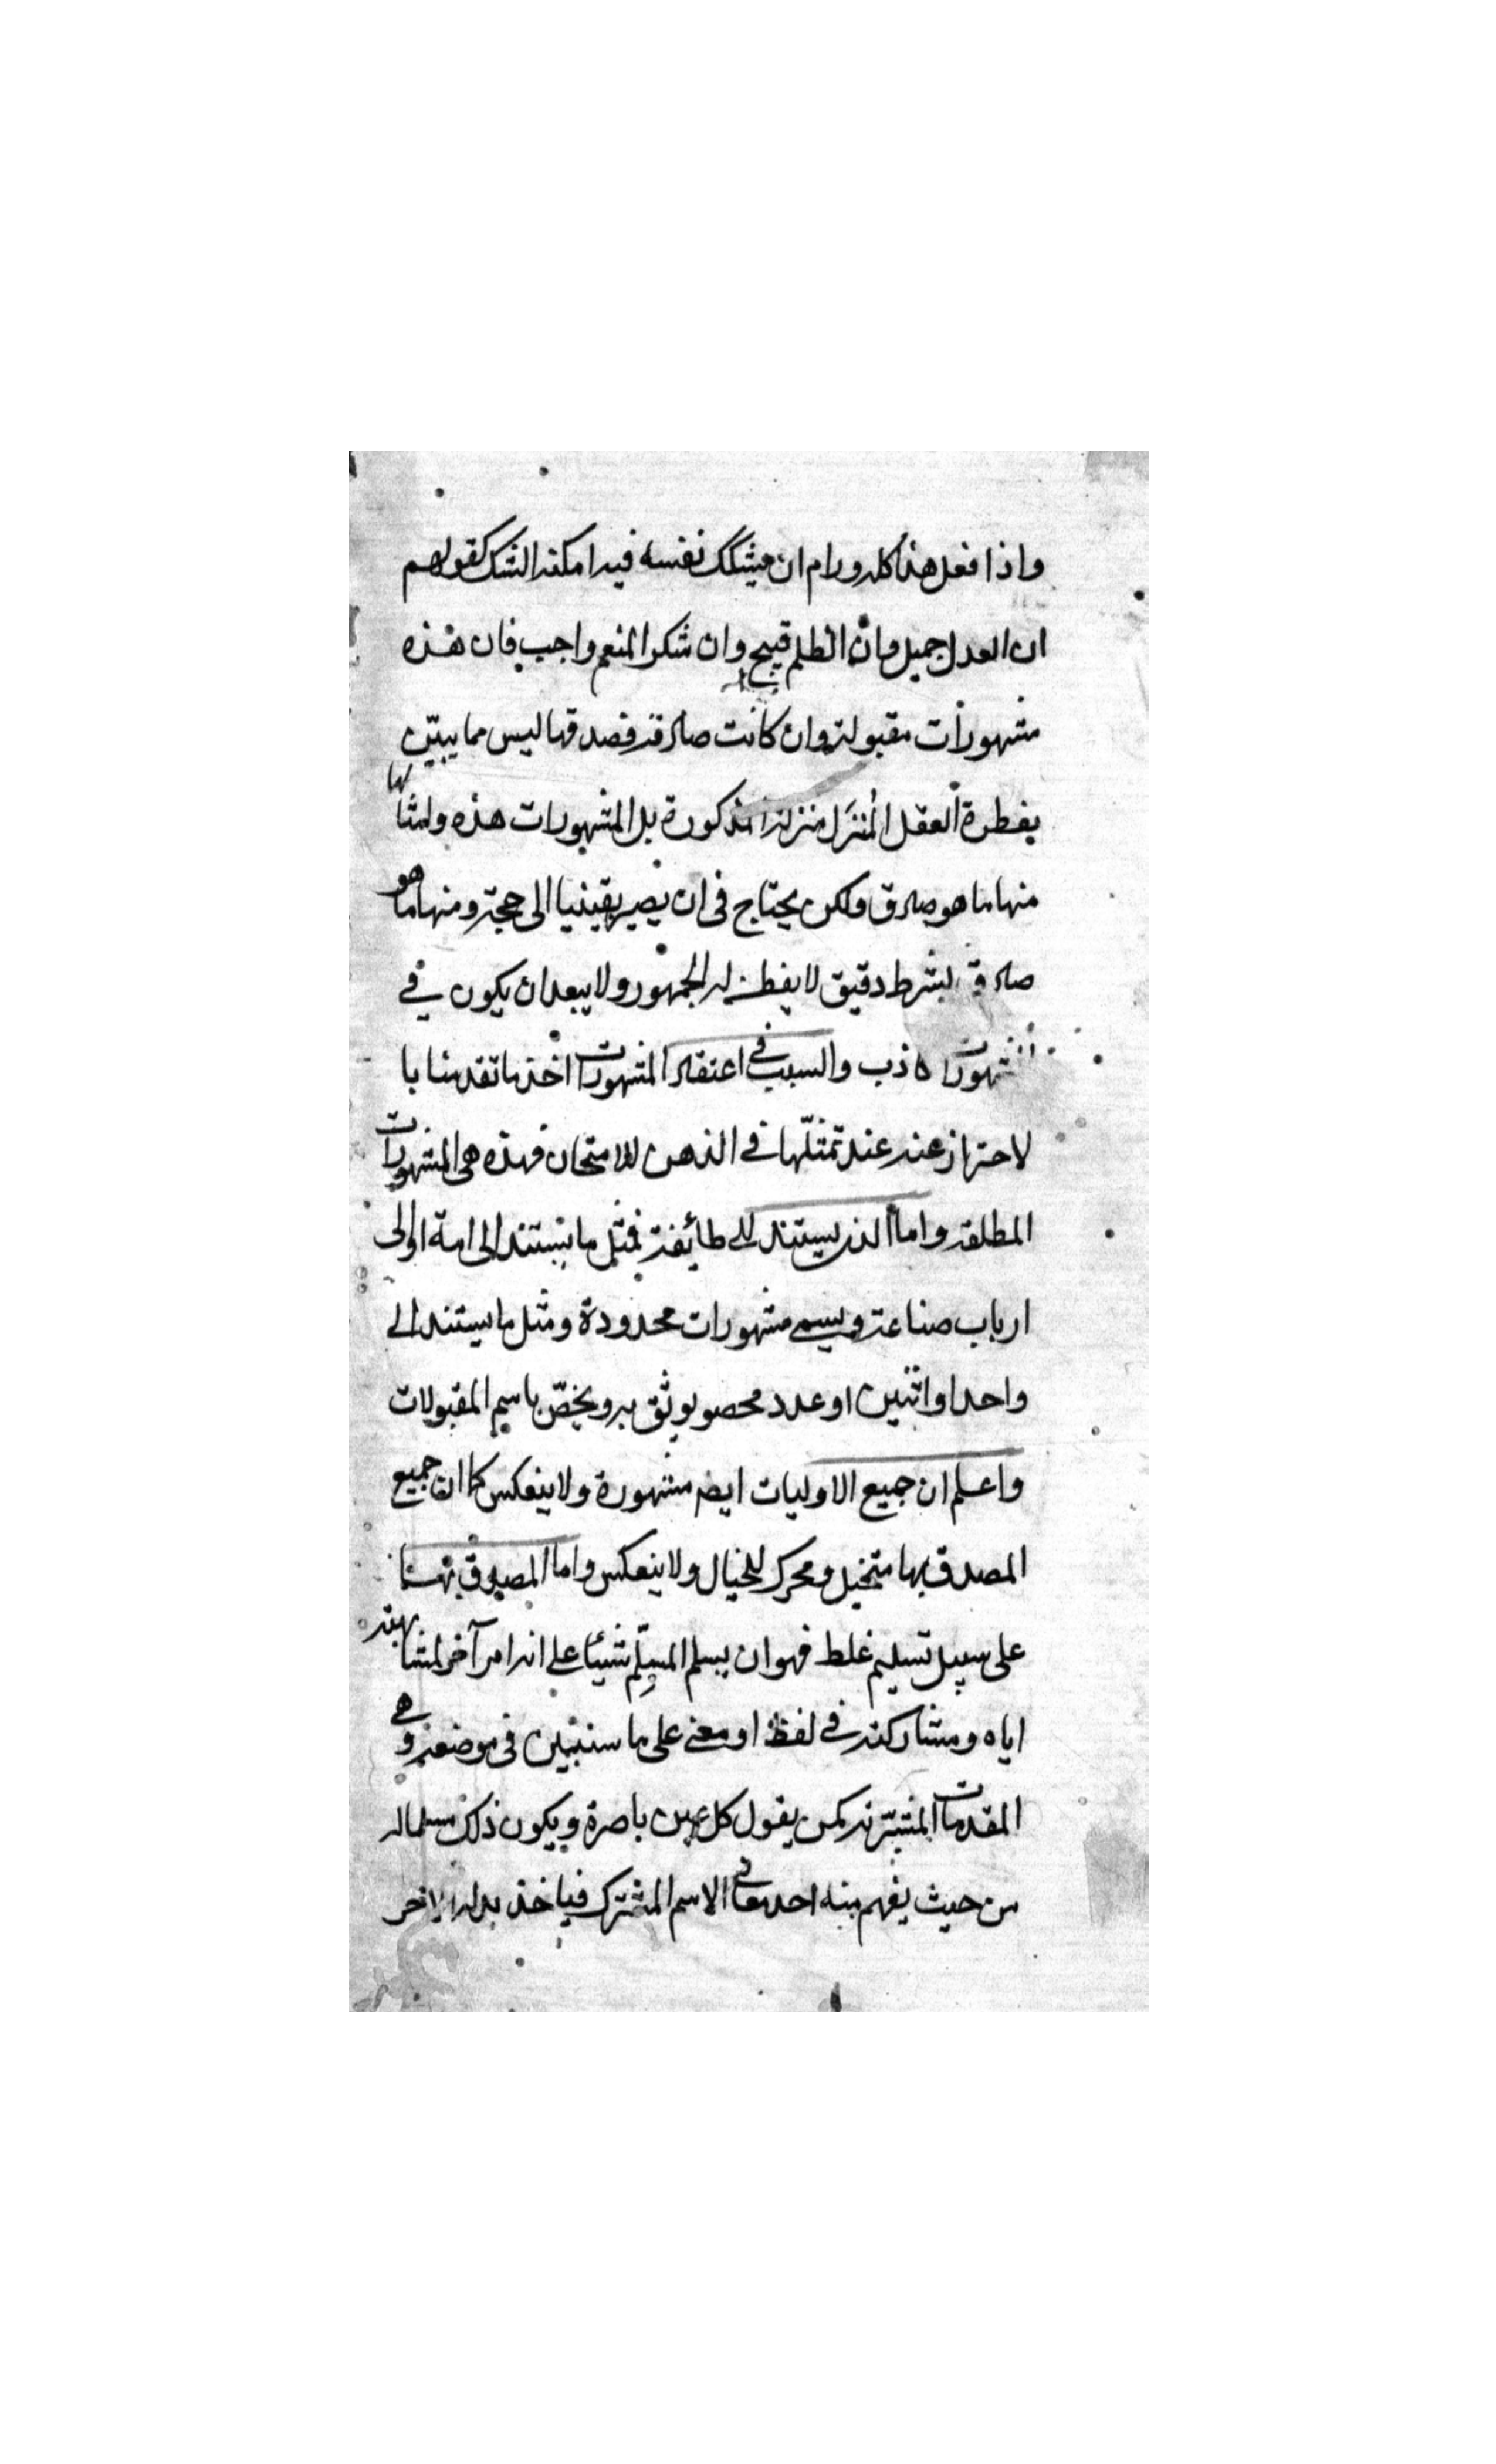 واذا فعل هذا كله ورام ان يشكك نفسه فيه امكنه الشك كقولهم
ان العدل جميل وان الظلم قبيح وان شكر المنعم واجب فان هذه
مشهورات مقبولة وان كانت صادقة فصدقها ليس مما يبيّن
بفطرة العقل المُنزَل منزلة المذكورة بل المشهورات هذه وامثالها
منها ما هو صادق ولكن يحتاج فى ان يصير يقينيا الى حجة ومنها ما هو
صادق بشرط دقيق لا يفطن له الجمهور ولا يبعد ان يكون في
المشهورات كاذب والسبب في اعتقاد المشهورات اخذ ما تقدمنا با
لاحتراز عنه عند تمثلّها في الذهن للامتحان فهذه هى المشهورات
المطلقة واما الذى يستند الى طائفة فمثل ما يستند الى امة او الى
ارباب صناعة ويسمى مشهورات محدودة ومثل ما يستند الى
واحد او اثنين او عدد محصور يوثق به ويخصّ باسم المقبولات
واعلم ان جميع الاوليات ايضا مشهورة ولا ينعكس كما ان جميع
المصدق بها متخيل ومحرك للخيال ولا ينعكس واما المصدق بها
على سبيل تسليم غلط فهو ان يسلم المسِلّم شيئا على انه امر آخر لمشابهته
اياه ومشاركته في لفظ او معنى على ما سنبين فى موضعه وهي
المقدمات المشبّهة كمن يقول كل عين باصرة ويكون ذلك مسلما له
من حيث يفهم منه احد معانى الاسم المشترك فياخذ بدله الاخر